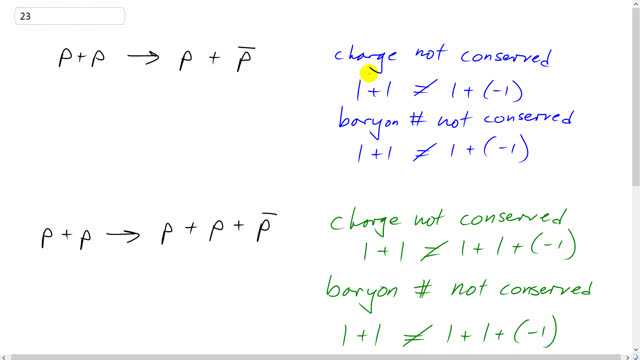 23
p + p → p + p̅
charge not conserved
1 + 1 ≠ 1 + (-1)
baryon # not conserved
1 + 1 ≠ 1 + (-1)
p + p → p + p + p̅
charge not conserved
1 + 1 ≠ 1 + 1 + (-1)
baryon # not conserved
1 + 1 ≠ 1 + 1 + (-1)